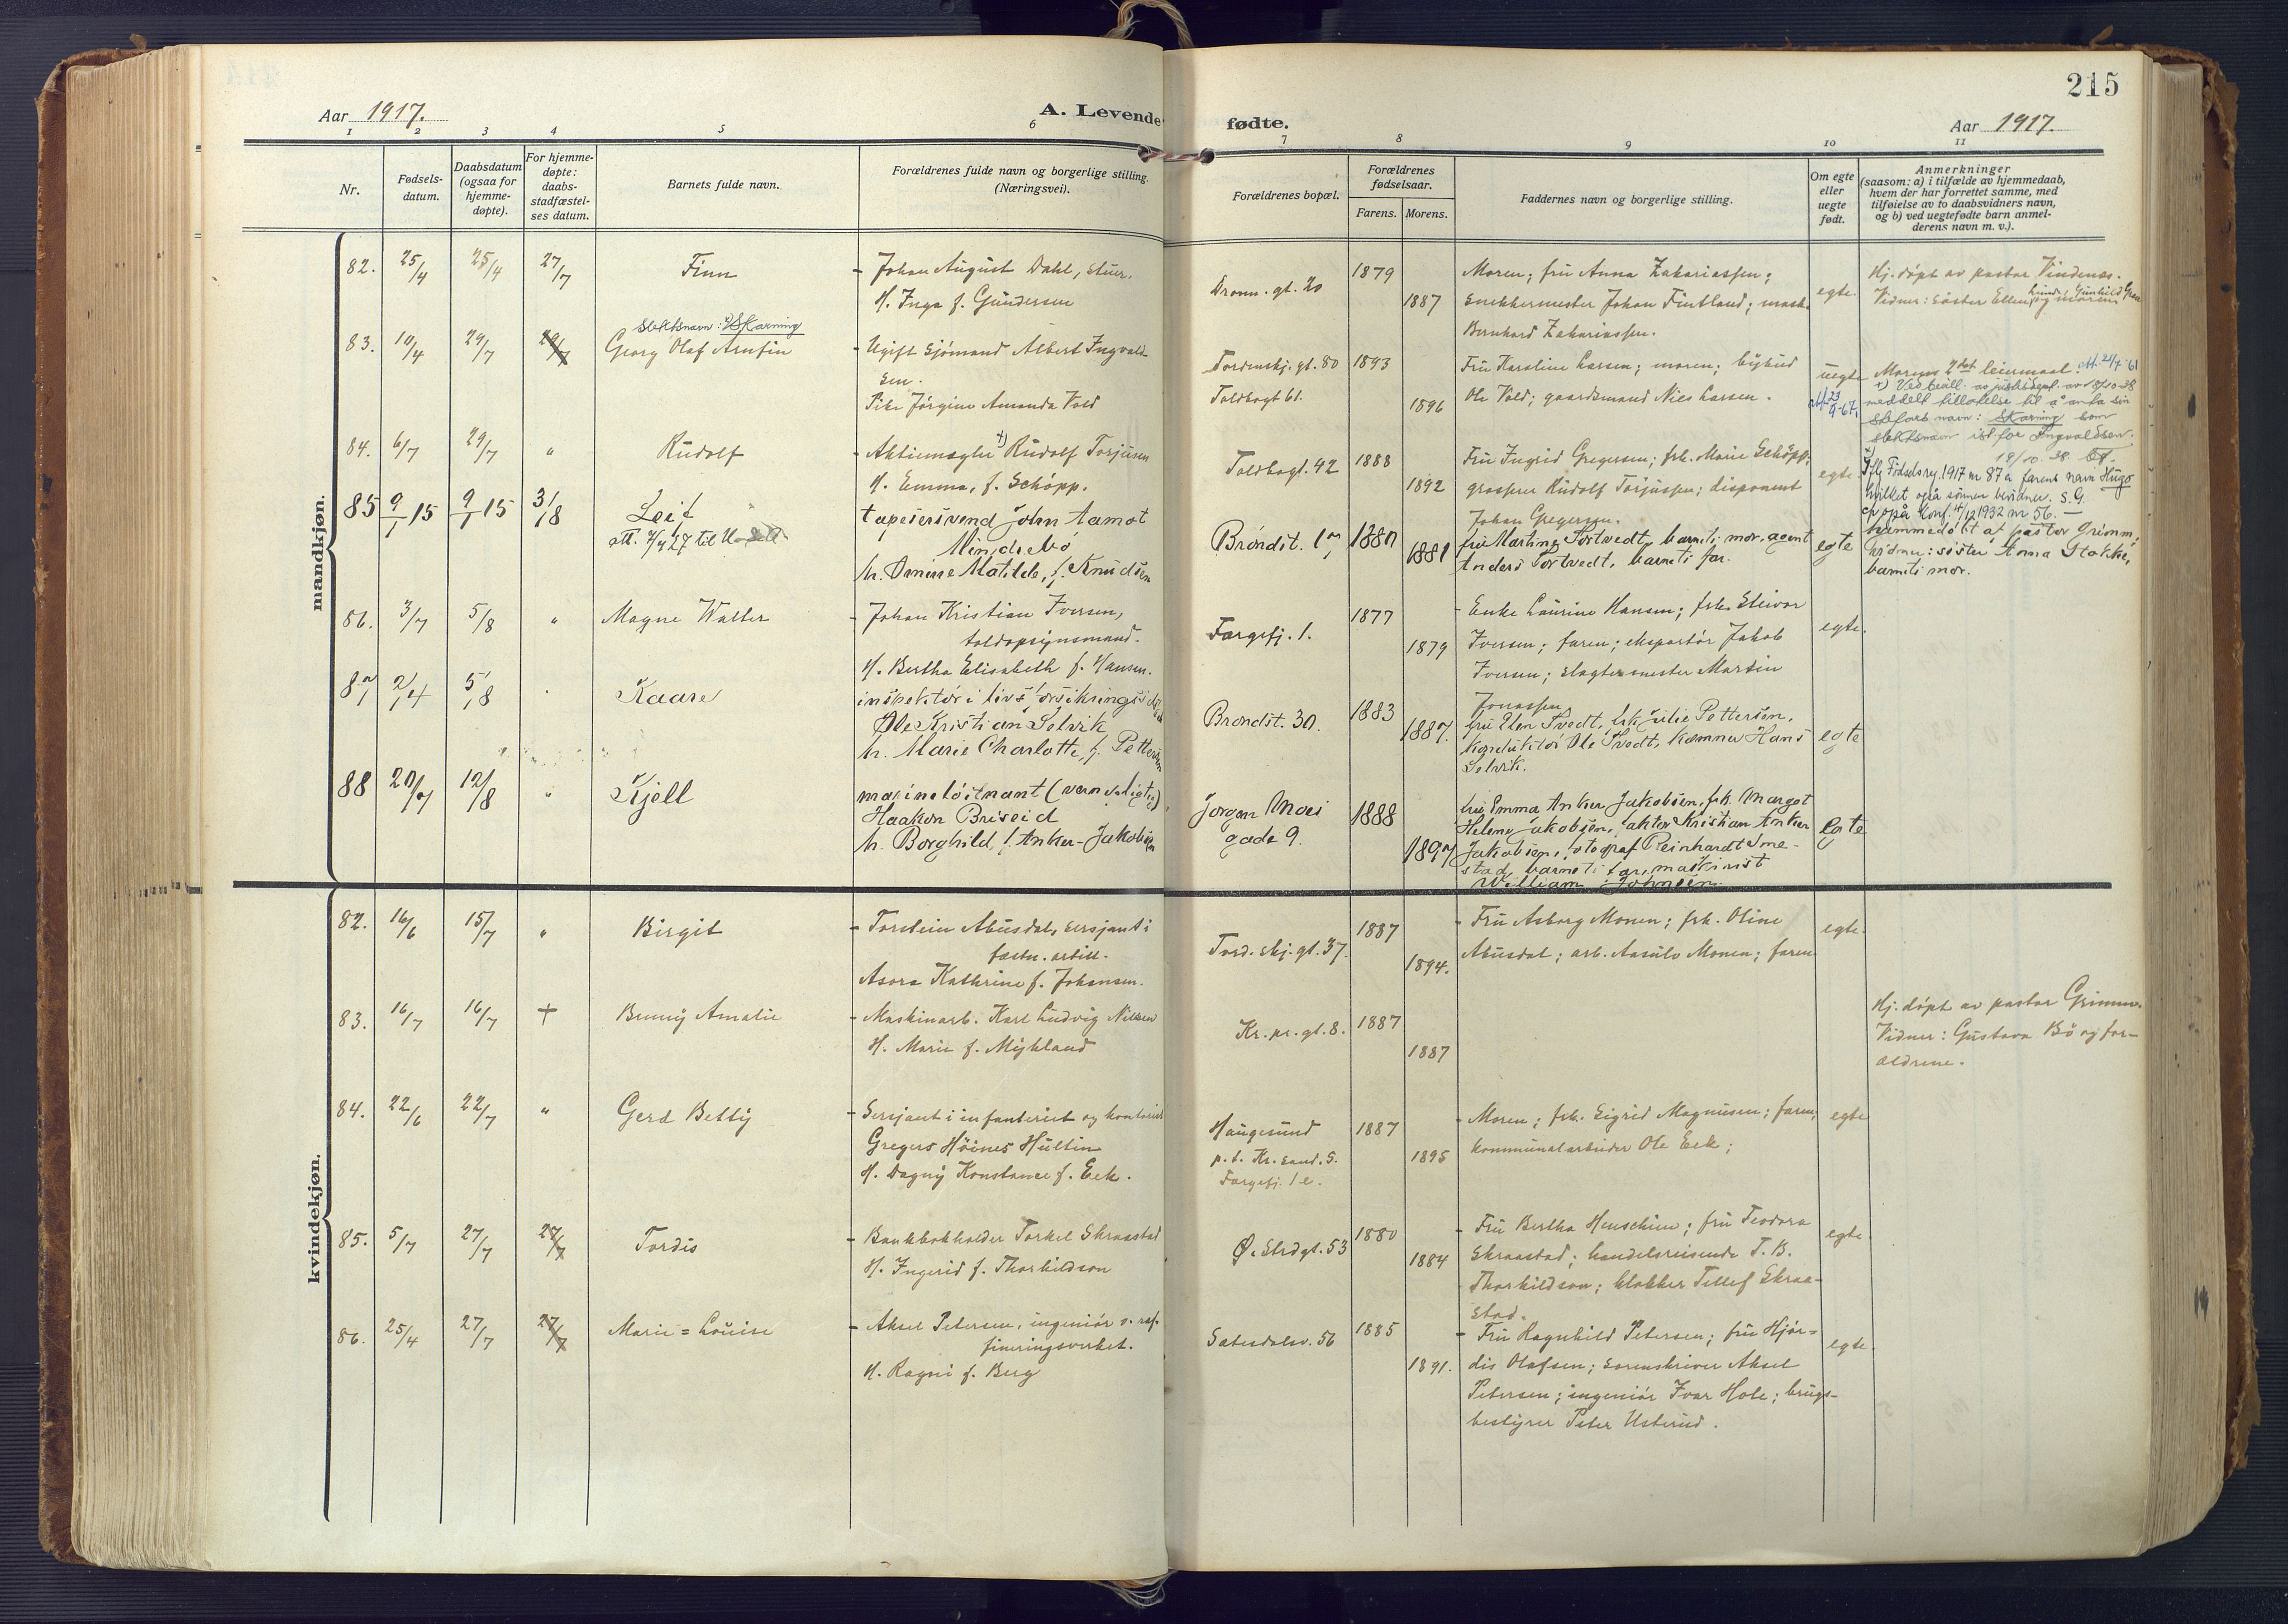 215
Aar 1917.
A. Levende fødte.
Aar 1917.
1 2 3 4 5 6 7 8 9 10 11
Nr.
Fødsels-
datum.
Daabsdatum
(ogsaa for
hjemme-
døpte).
For hjemme-
døpte:
daabs-
stadfæstel-
ses datum.
Barnets fulde navn.
Forældrenes fulde navn og borgerlige stilling.
(Næringsvei).
Forældrenes bopæl.
Forældrenes
fødselsaar.
Farens. Morens.
Faddernes navn og borgerlige stilling.
Om egte
eller
uegte
født.
Anmerkninger
(saasom: a) i tilfælde av hjemmedaab,
hvem der har forrettet samme, med
tilføielse av to daabsvidners navn,
og b) ved uegtefødte barn anmel-
derens navn m. v.).
mandkjøn.
82. 25/4 25/4 27/7
Finn
- Johan August Dahl, stuer.
H. Inga f. Gundersen
Dronn. gt. 20
1879
1887
Moren; fru Anna Zakariassen;
snekkermester Johan Fintland;
Bernhard Zakariassen.
egte.
Hj. døpt av pastor Vindenes.
Vidner: Søster Ellen
83. 10/4 29/7 29/7
Slektsnavn: Skarning
Georg Olaf Arnfin
- Ugift sjømand Albert Ingvald-
sen.
Pike Jørgine Amanda Vold
Tordenskj. gt. 80
Toldbogt 61.
1893
1896
Fru Karoline Larsen; moren; bybud
Ole Vold; gaardsmand Nies Larsen.
uegte
Morens 2det leiermaal.
Ved bevill. av justisdept. av 18/10-38
meddelt tillatelse til å anta sin
stefars navn: Skarning som
slektsnavn ist. for Ingvaldsen.
18/10.38.
84. 6/7 29/7 "
Rudolf
- Aktiemægler Rudolf Torjusen
H. Emma, f. Schøpp.
Toldbogt. 42
1888
1892
Fru Ingrid Gregersen; frk. Marie Schøpp;
grosserer Rudolf Torjussen; disponent
Johan Gregersen.
egte.
Iflg Fødselsreg. 1917 nr 87 a farens navn Hugo
hvilket også sønnen bevidner. S. G.
cfr også Konf. 1932 nr 56. —
85 9/1 15 9/1 15 3/8
Leif
att. 4/4 27 til
tapetsersvend John Aamot
Minde Mo
h. Omine Matilde, f. Knudsen
Brøndst. 17
1880
1881
fru Martine Tortvedt, barnets mor, agent
Anders Tortvedt, barnets far.
egte
hjemmedøbt af pastor Grimm,
vidner: søster Anna Stokke,
barnets mor.
86. 3/7 5/8 "
Magne Walter
- Johan Kristian Iversen,
toldopsynsmand.
H. Bertha Elisabeth f. Hansen.
Fargefj. 1.
1877
1879
- Enke Laurine Hansen; frk. Eleivor
Iversen; faren; ekspeditør Jakob
Iversen; slagtermester Martin
Jonassen
egte.
87 2/4 5/8
Kaare
inspektør i livsforsikringsselsk
Ole Kristian Selvik
h. Marie Charlotte, f. Pettersen
Brøndst. 30.
1883
1887.
fru Elen Tvedt, frk Julie Pettersen,
konduktør Ole Tvedt, kæmner Hans
Selvik.
egte
88 20/7 12/8 "
Kjell
marineløitnant (vernepligtig)
Haakon Briseid
h. Borghild, f. Anker-Jakobsen
Jørgen Moes
gade 9.
1888
1897
fru Emma Anker Jakobsen, frk. Margot
Helene Jakobsen, faktor Kristian Anker
Jakobsen, fotograf Reinhardt Sme-
stad, barnets far, maskinist
William Johnsen.
egte
kvindekjøn.
82. 16/6 15/7 "
Birgit
- Torstein Abusdal, sersjant i
fæstn. artill.
Asora Kathrine f. Johansen.
Tord.skj. gt. 37.
1887
1894.
- Fru Asborg Monen; frk. Oline
Abusdal; arb. Aasulv Monen; faren
egte.
83. 16/7 16/7 +
Bunny Amalie
- Maskinarb. Karl Ludvig Nilsen
H. Marie f. Mykland
Kr. pr. gt. 8.
1887
1887
Hj. døpt av pastor Grimm.
Vidner: Gustava Bø og for-
ældrene.
84. 22/6 22/7 "
Gerd Betty
- Sersjant i infanteriet og kontorist
Gregers Høines Hultin
H. Dagny Konstance f. Eek.
Haugesund
p. t. Kr.sand. S.
Fargefj. 1 e.
1887
1895
- Moren; frk. Sigrid Magnusen; faren;
kommunalarbeider Ole Eek;
egte
85. 5/7 27/7 27/7
Tordis
- Bankbokholder Torkel Skraastad
H. Ingerid f. Thorkildson
Ø. Strdgt. 53
1880
1884
- Fru Bertha Henschien; fru Teodora
Skraastad; handelsreisende T. B.
Thorkildson; klokker Tellef Skraa-
stad.
egte
86. 25/4 27/7 27/7
Marie=Louise
- Aksel Petersen, ingeniør v. raf-
fineringsverket.
H. Ragni f. Berg
Setesdalsv. 56
1885
1891.
- Fru Ragnhild Petersen; fru Hjør-
dis Olafsen; sorenskriver Aksel
Petersen; ingeniør Ivar Hole; brugs-
bestyrer Peter Usterud.
egte.